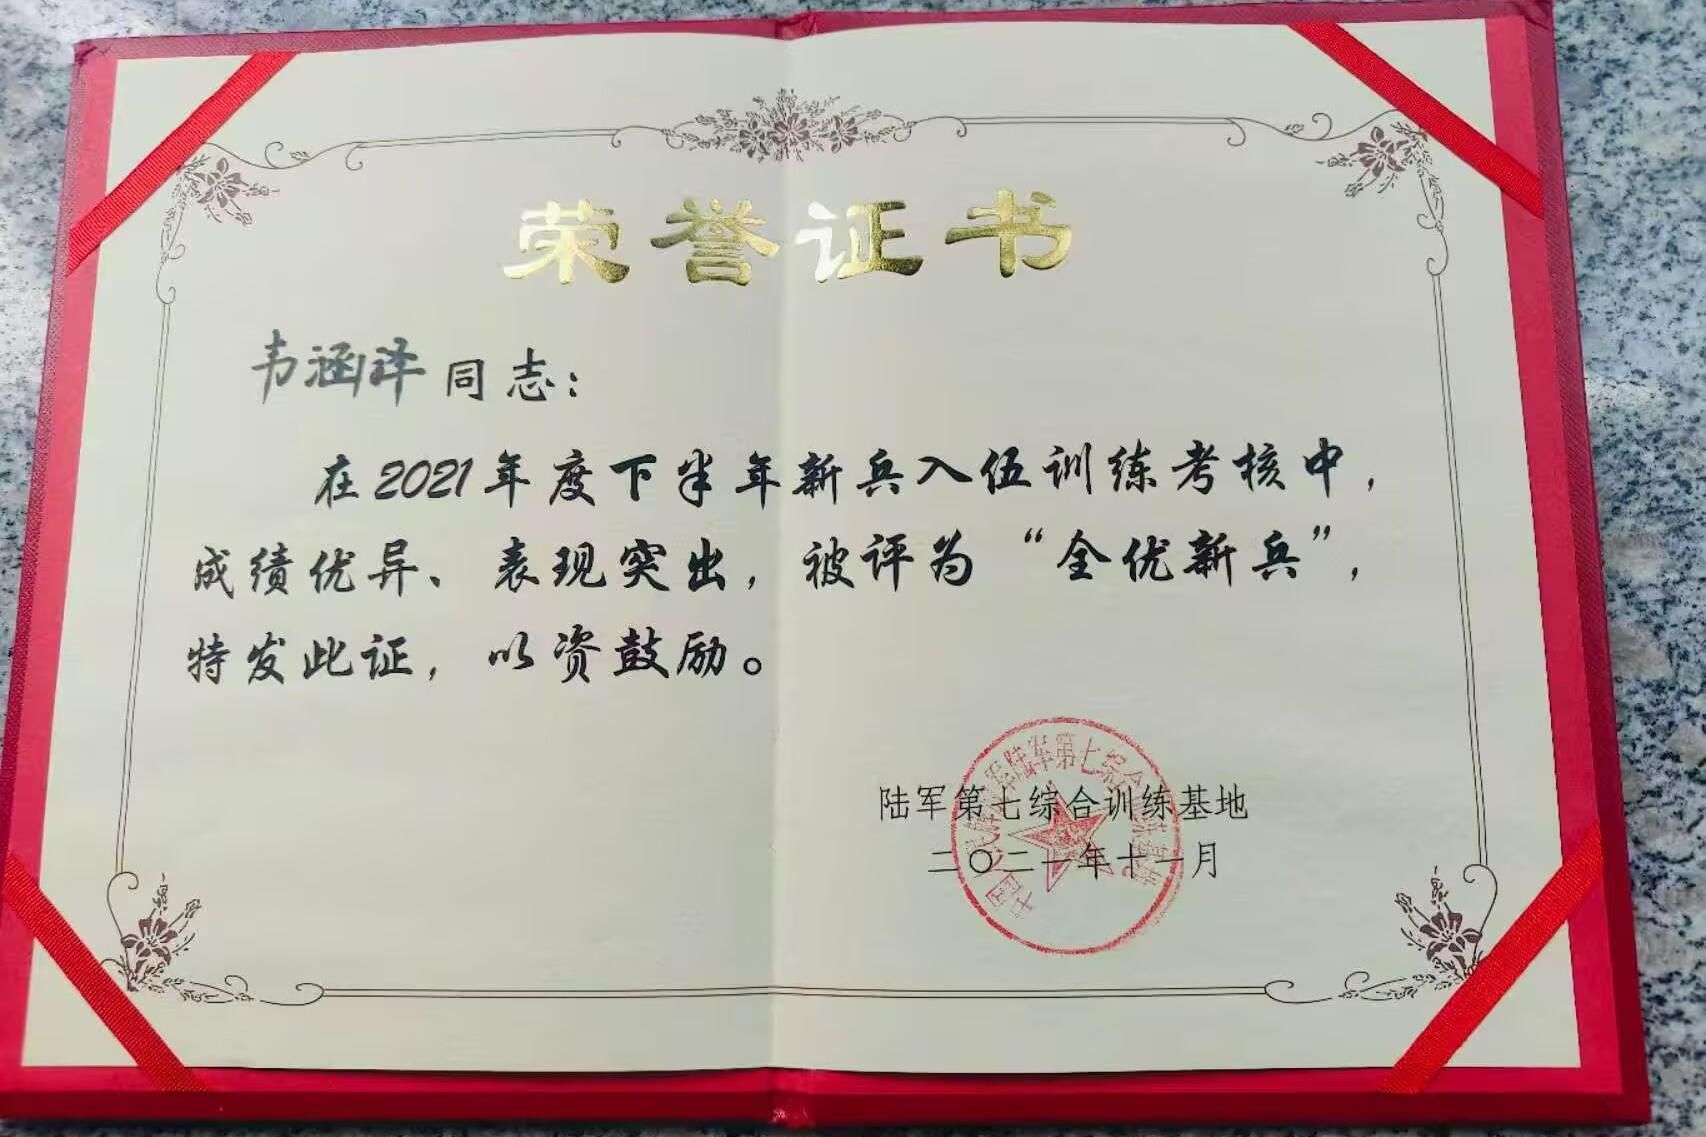 荣誉证书
韦涵泽同志：
在2021年度下半年新兵入伍训练考核中，
成绩优异、表现突出，被评为“全优新兵”，
特发此证，以资鼓励。
陆军第七综合训练基地
二〇二一年十一月